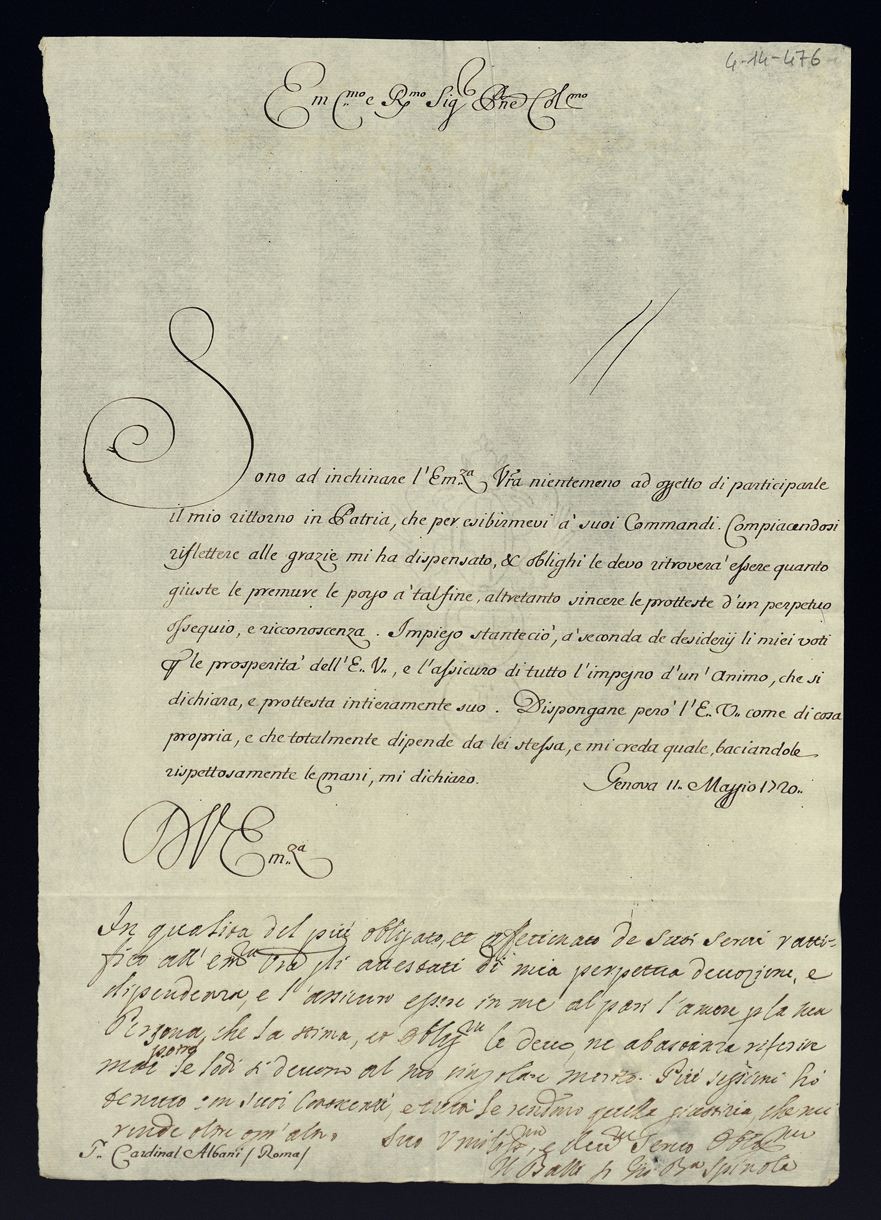 4-14-476
Em.mo e R.mo Sig.r P̃rne Col.mo
Sono ad inchinare l'Em.za Vr̃a nientemeno ad oggetto di participarle
il mio rittorno in Patria, che per esibirmevi à suoi Commandi. Compiacendosi
riflettere alle grazie mi ha dispensato, & oblighi le devo ritroverà essere quanto
giuste le premure le porgo à tal fine, altretanto sincere le protteste d'un perpetuo
ossequio, e ricconoscenza. Impiego stanteciò, à seconda de desiderij li miei voti
ꝑ le prosperità dell'E. V., e l'assicuro di tutto l'impegno d'un'Animo, che si
dichiara, e prottesta intieramente suo. Dispongane però l'E. V. come di cosa
propria, e che totalmente dipende da lei stessa, e mi creda quale, baciandole
rispettosamente le mani, mi dichiaro. Genova 11. Maggio 1720.
D V Em.za
In qualità del più obligato, et affetionato de suoi servi ratti-
fico all'em.za Vr̃a gli attestati di mia perpetua devozione, e
dipendenza, e l'assicuro essere in me al pari l'amore ꝑ la sua
Persona, che la stima, et le devo, ne abastanza riferire
mai posso le lodi si devono al suo singolare merito. Più ho
tenuto con suoi e tutti le rendono quella giustitia, che mi
rende oltre ogn'altro Suo Umiliss.mo, e dev.mo Servo
Il Balì Gio Ba Spinola
S.r Cardinal Albani / Roma /